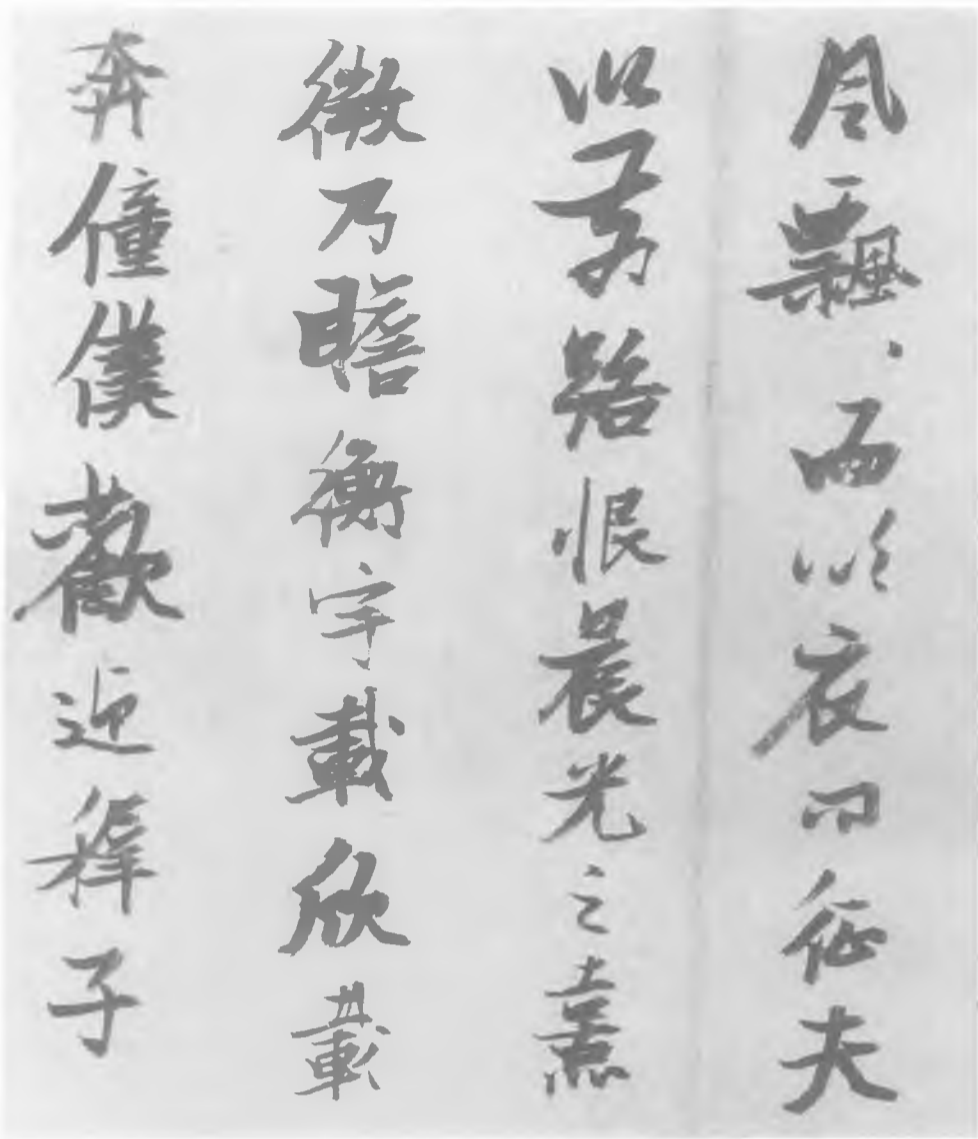 風飄〻而吹衣問征夫
以前路恨晨光之熹
微乃瞻衡宇載欣載
奔僮僕歡迎稺子